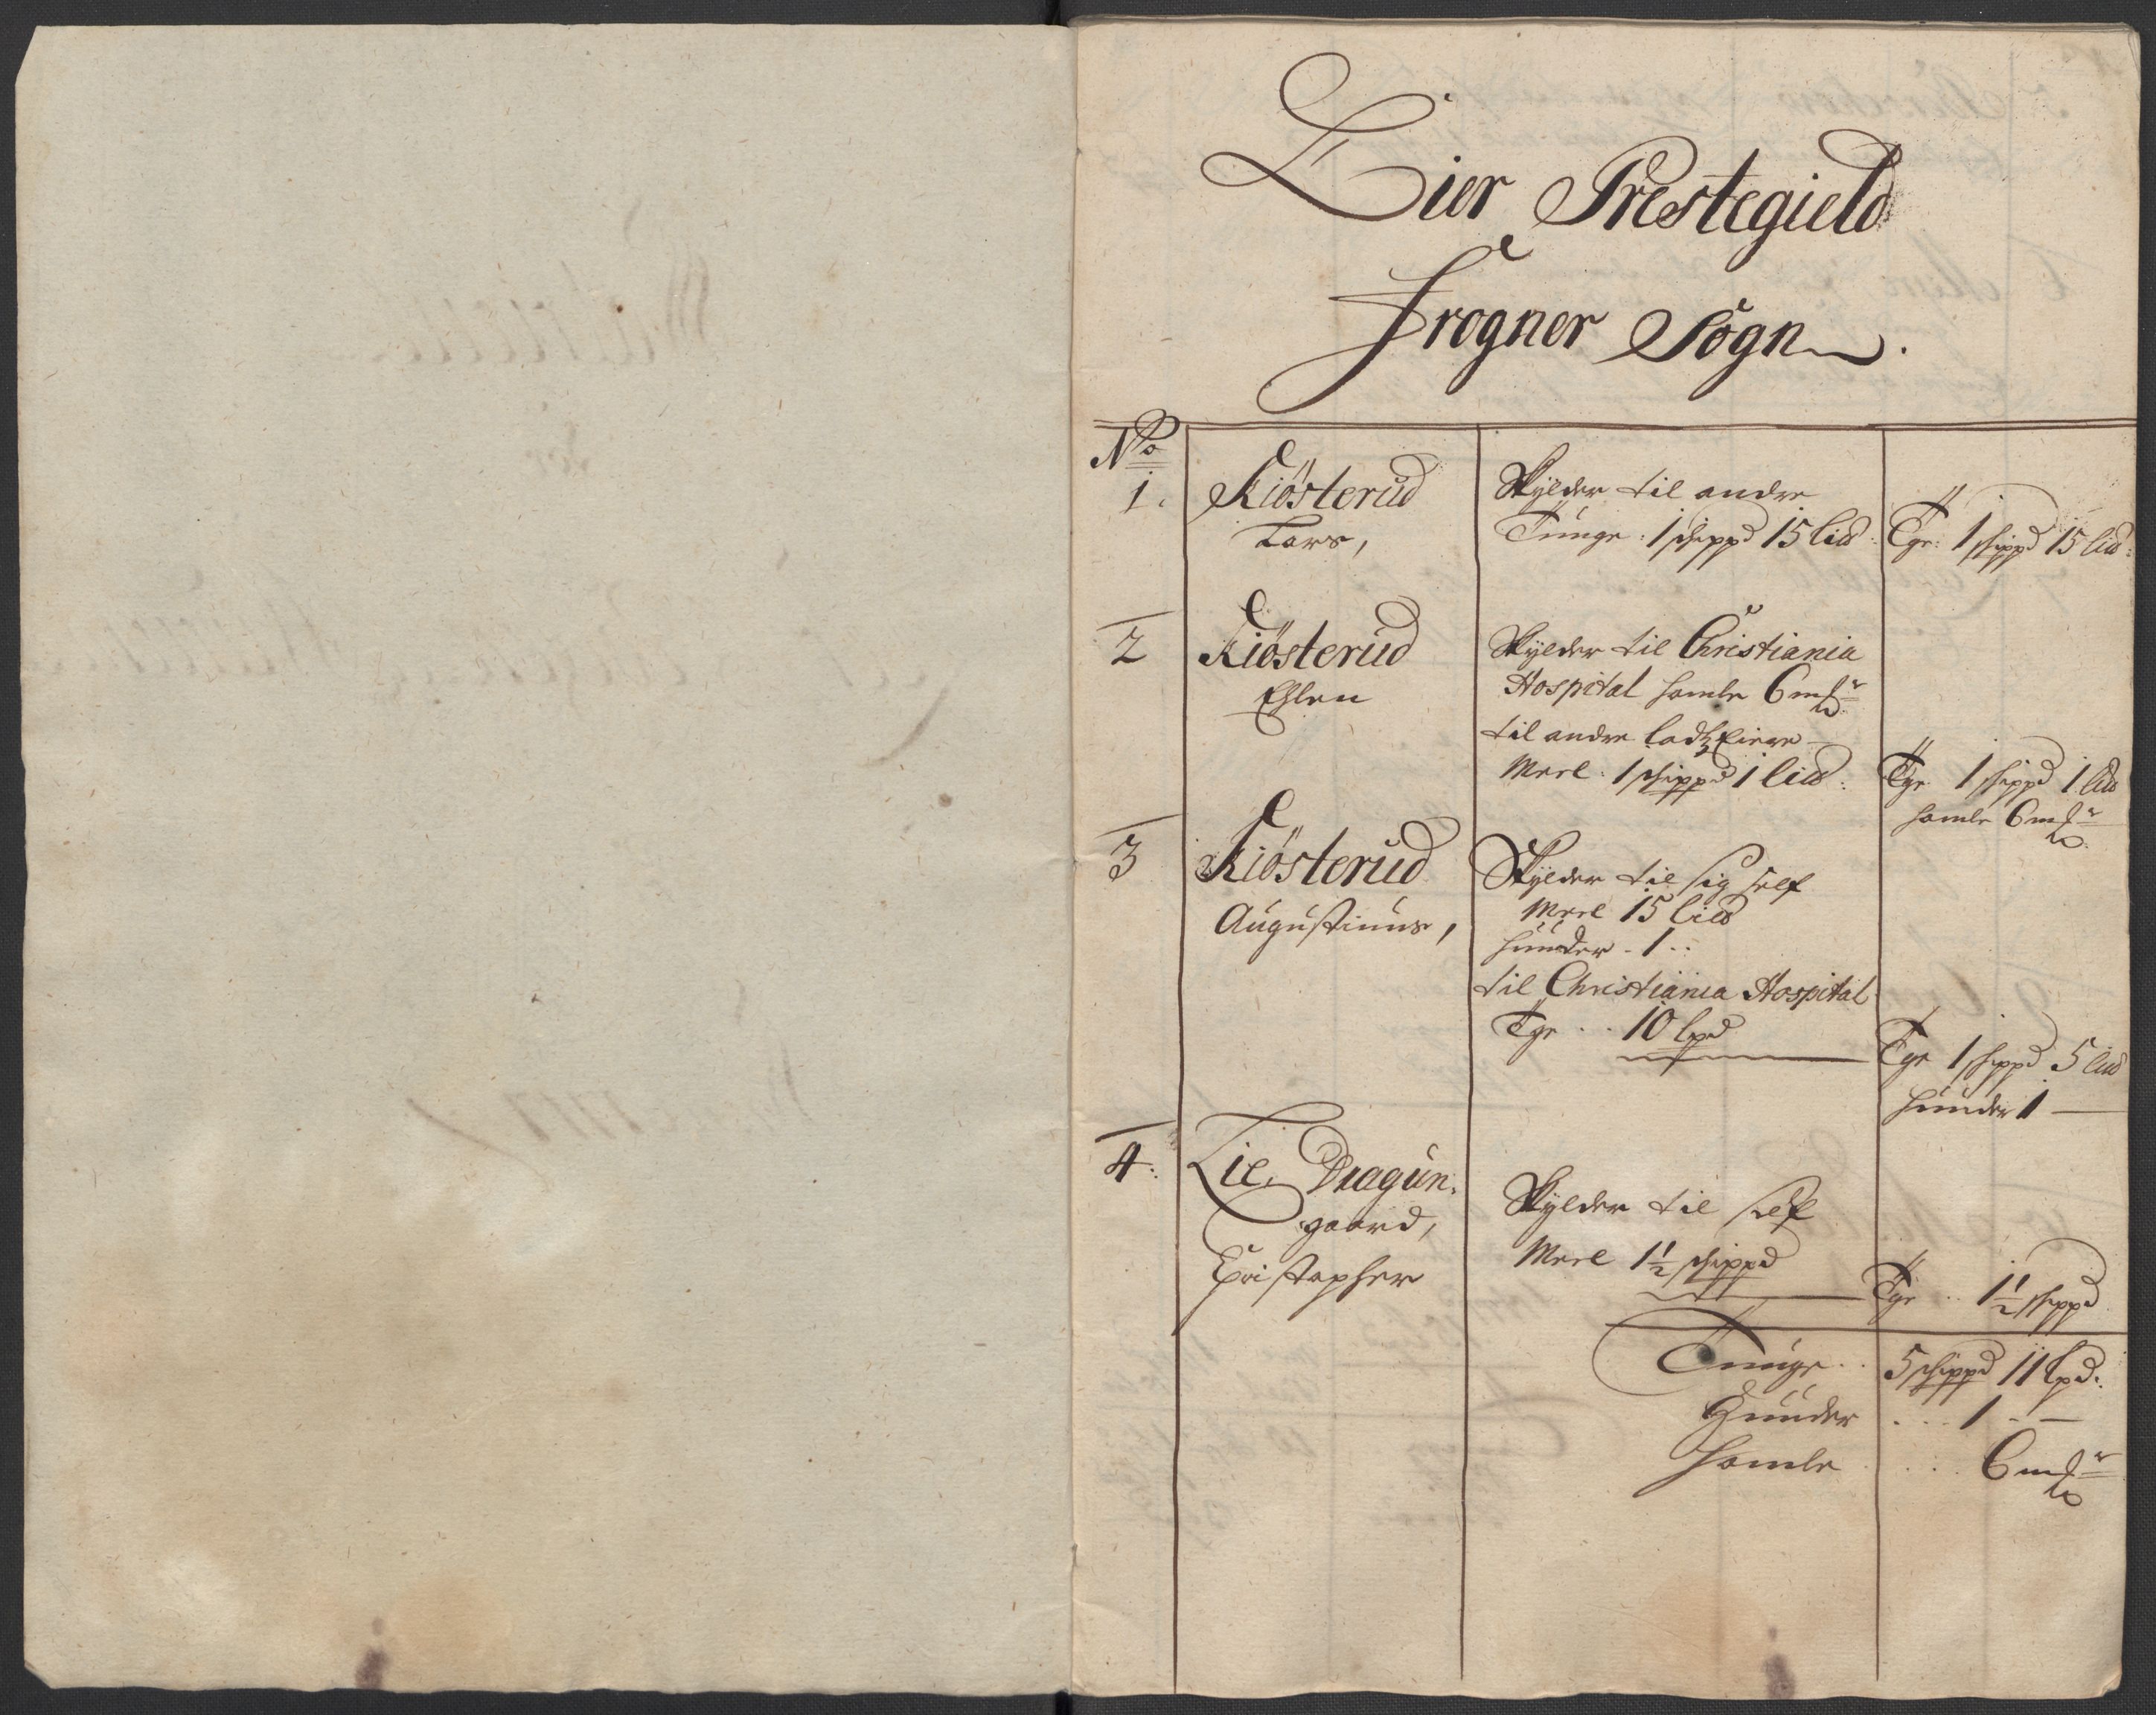 Lier Prestegield
Frogner Sogn
No
1.
Kiösterüd
Lars,
Skylder til andre
Tünge. 1 schippd 15 lid
Tge. 1 schippd 15 lid.
2
Kiösterüd
Ehlen
Skylder til Christiania
Hospital homle 6 mkr
til andre Lodz Eiere
Meel. 1 schippd 1 lid.
Tge 1 schippd 1 lid
homle 6 mkr
3
Kiösterüd
Augustinus,
Skylder til sig self
Meel 15 lid
hüuder - 1 -
til Christiania Hospital
Tge .. 10 lpd
Tge 1 schippd 5 lid
hüuder 1 —
4.
Lie, Dragün-
gaard,
Christopher
Skylder til self
Meel 1 1/2 schippd
Tge .. 1 1/2 schippd
Tünge .. 5 schippd 11 lpd.
Hüuder ... 1 - -
Homle ... 6 mkr